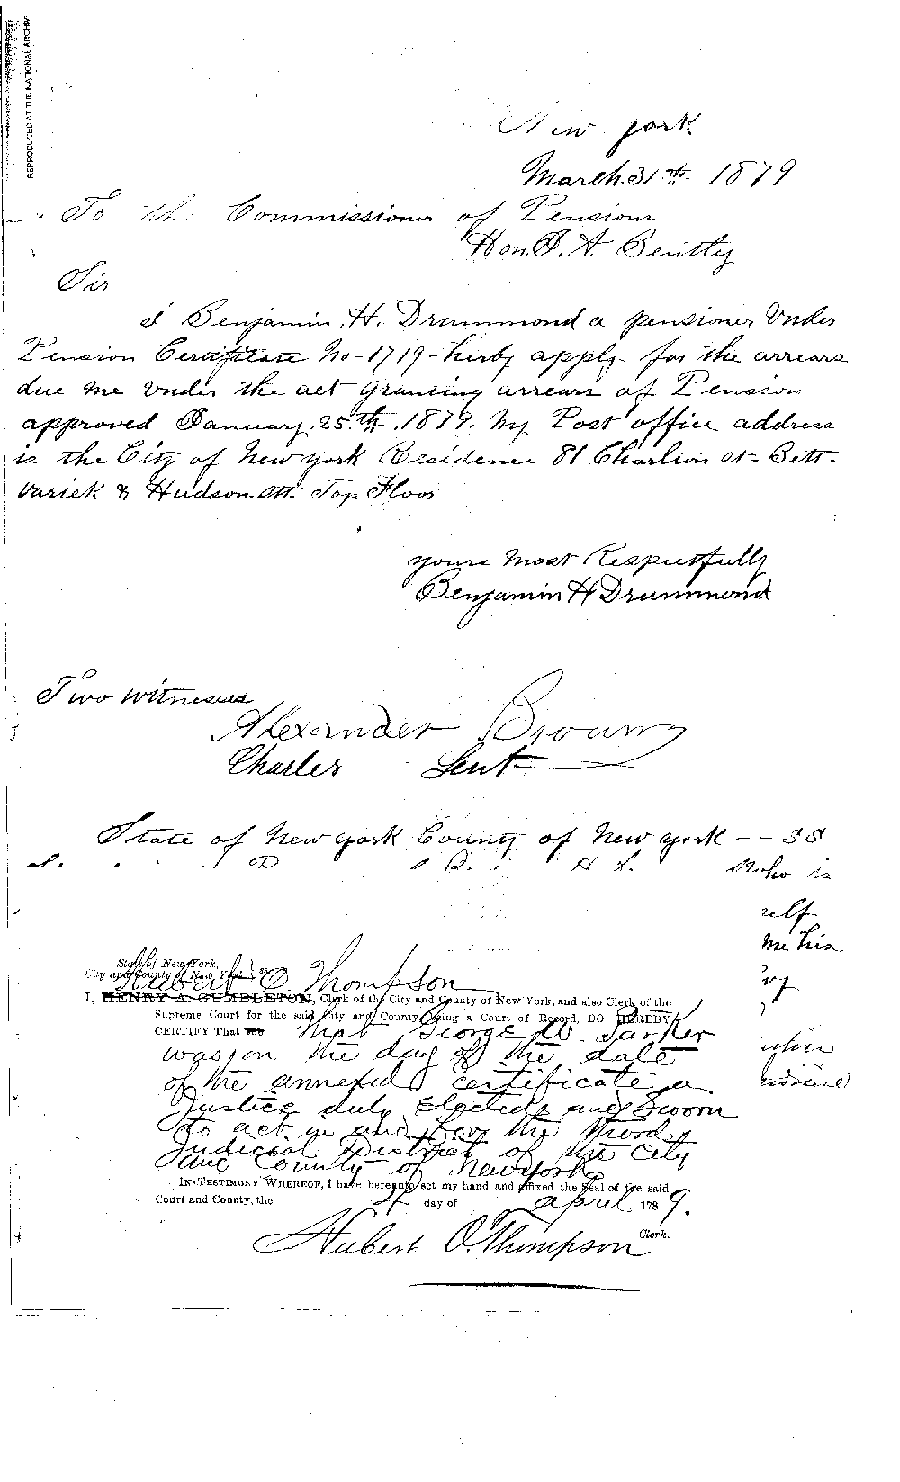 REPRODUCED AT THE NATIONAL ARCHIV
New york
March 31th 1879
To the Commissioner of Pensions
Hon. J. A. Bentley
Sir
I Benjamin. H. Drummond a pensioner Under
Pension Certificate No - 1719 - hirby apply for the arrears
due me under the act granting arrears of Pension
approved January. 25th. 1879. My Post office address
is the City of New york Residence 81 Charlton st - Bett.
Varick & Hudson sts. Top Floor
yours Most Respectfully
Benjamin H Drummond
Two Witnesses
Alexander Brown
Charles Lent
State of New york County of New york -- SS
I. who is
self
me his
State of New York,
City and County of New York
Hubert O. Thompson
I, HENRY A. GUMBLETON, Clerk of the City and County of New York, and also Clerk of the
Supreme Court for the said City and County, being a Court of Record, DO HEREBY
CERTIFY That George W. Parker
was on the day of the date
of the annexed certificate a
Justice duly Elected and Sworn
to act in and for the
Judicial District of the City
and County of New york
IN TESTIMONY WHEREOF, I have hereunto set my hand and affixed the Seal of the said
Court and County, the day of april 1879.
Hubert O. Thompson Clerk.